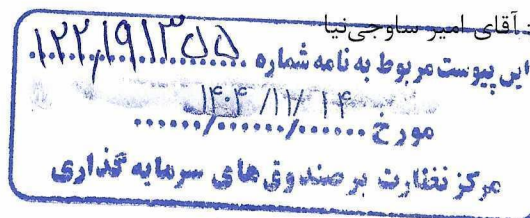 : آقای امیر ساوجی‌نیا
این پیوست مربوط به نامه شماره ۱۲۲,۱۹۱۳۵۵
مورخ ۱۴۰۴/۱۱/۱۴
مرکز نظارت بر صندوق های سرمایه گذاری